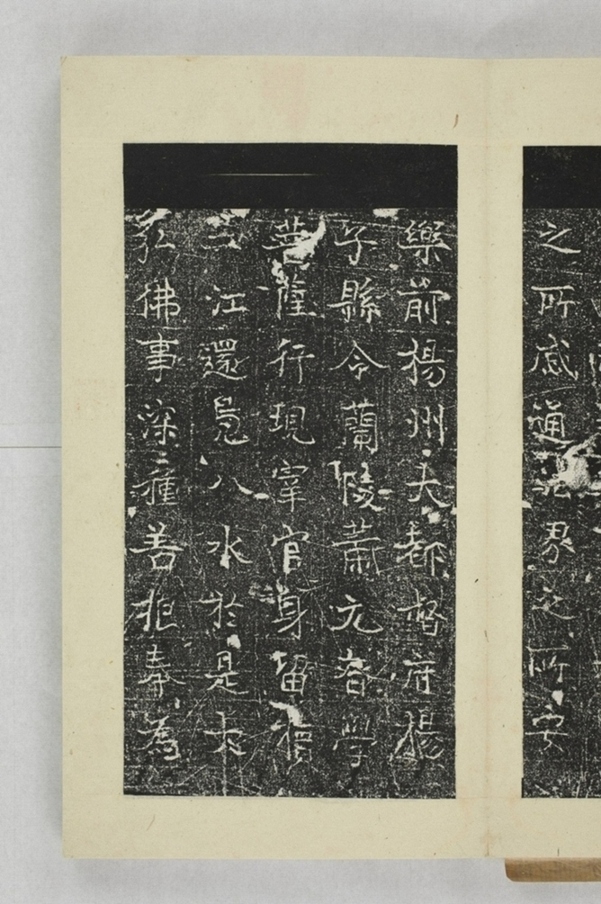 之所感通 界之所安
樂前揚州大都督府揚
子縣令蘭陵蕭元眘學
菩薩行現宰官身留犢
江還鳧八水於是大
弘佛事深種善根奉為